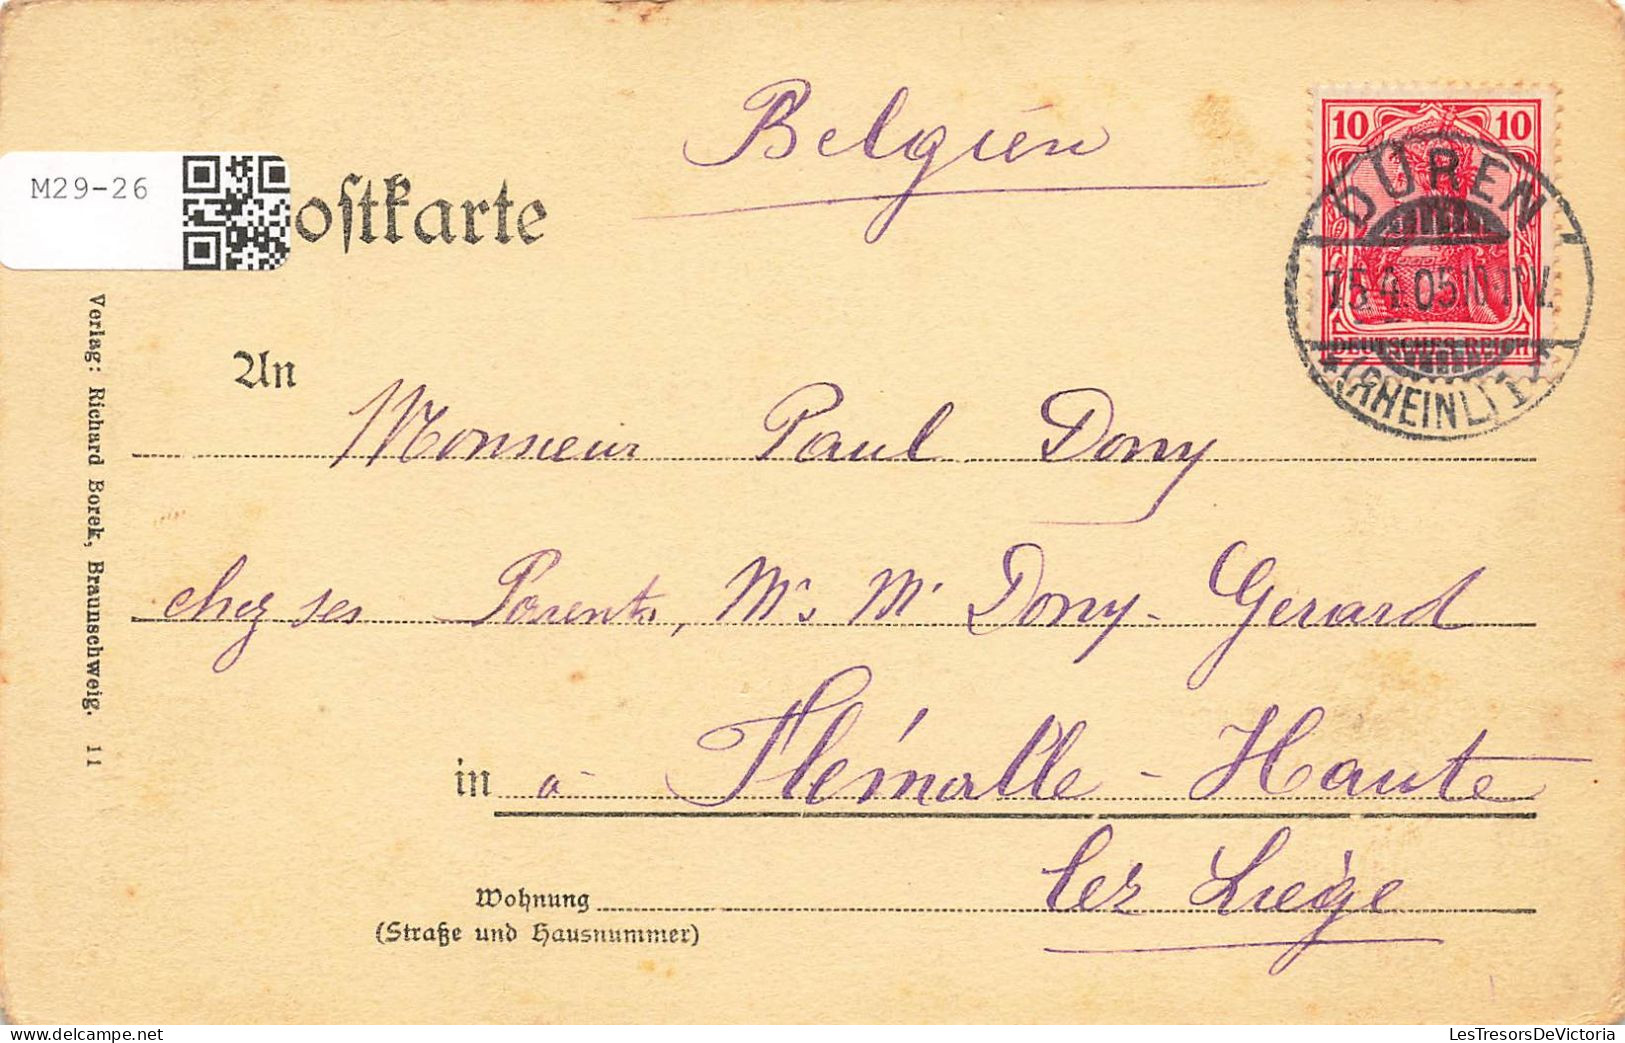 Belgien
M29-26
ostkarte
10 10
DÜREN
15.4.05 10-11V.
DEUTSCHES REICH
(RHEINL.) 1
Verlag: Richard Borek, Braunschweig. 11
An
Monsieur Paul Dony
chez ses Parents, Mr & Mme Dony-Gerard
in à Flémalle-Haute
lez Liège
Wohnung
(Straße und Hausnummer)
LesTresorsDeVictoria